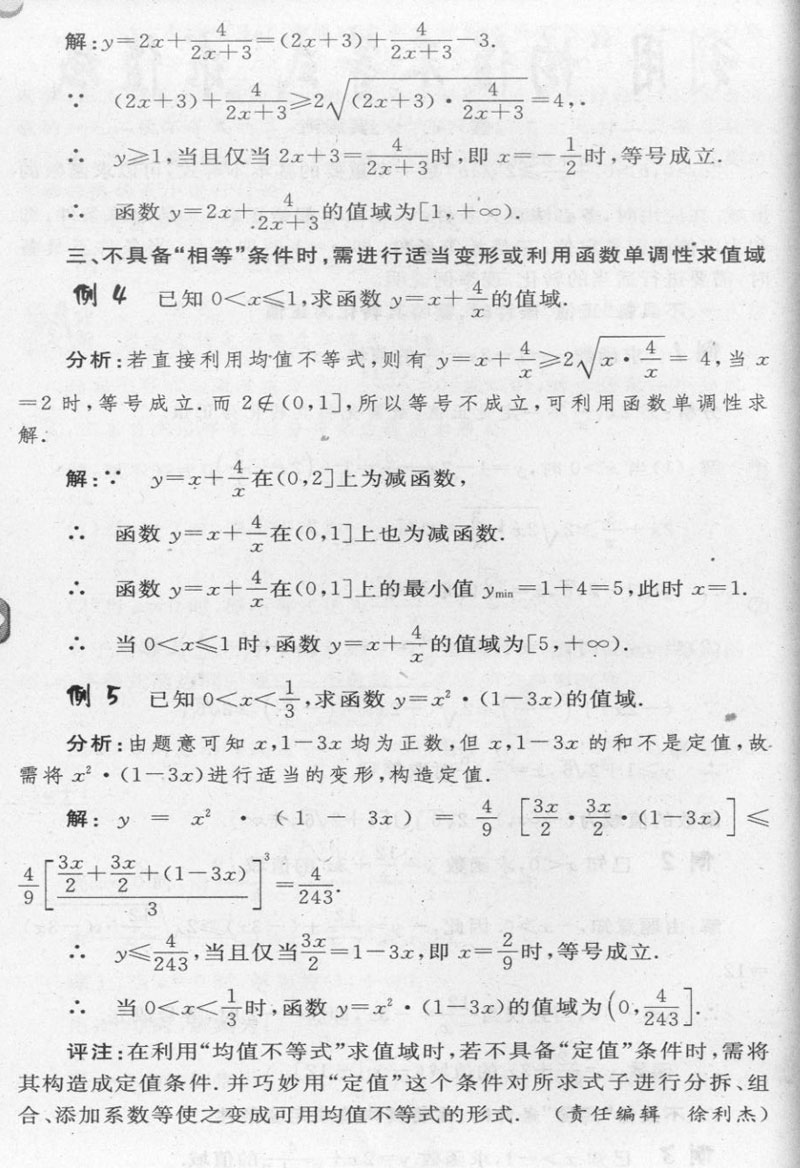 解:y=2x+4/(2x+3)=(2x+3)+4/(2x+3)-3.
∵ (2x+3)+4/(2x+3)≥2√((2x+3)·4/(2x+3))=4,.
∴ y≥1,当且仅当 2x+3=4/(2x+3)时,即 x=-1/2时,等号成立.
∴ 函数 y=2x+4/(2x+3)的值域为[1,+∞).
三、不具备“相等”条件时,需进行适当变形或利用函数单调性求值域
例 4 已知 0<x≤1,求函数 y=x+4/x的值域.
分析:若直接利用均值不等式,则有 y=x+4/x≥2√(x·4/x)=4,当 x
=2 时,等号成立.而 2∉(0,1],所以等号不成立,可利用函数单调性求
解.
解:∵ y=x+4/x在(0,2]上为减函数,
∴ 函数 y=x+4/x在(0,1]上也为减函数.
∴ 函数 y=x+4/x在(0,1]上的最小值 ymin=1+4=5,此时 x=1.
∴ 当 0<x≤1 时,函数 y=x+4/x的值域为[5,+∞).
例 5 已知 0<x<1/3,求函数 y=x²·(1-3x)的值域.
分析:由题意可知 x,1-3x 均为正数,但 x,1-3x 的和不是定值,故
需将 x²·(1-3x)进行适当的变形,构造定值.
解: y = x² · (1 - 3x) = 4/9 [3x/2·3x/2·(1-3x)] ≤
4/9[(3x/2+3x/2+(1-3x))/3]³=4/243.
∴ y≤4/243,当且仅当3x/2=1-3x,即 x=2/9时,等号成立.
∴ 当 0<x<1/3时,函数 y=x²·(1-3x)的值域为(0,4/243].
评注:在利用“均值不等式”求值域时,若不具备“定值”条件时,需将
其构造成定值条件.并巧妙用“定值”这个条件对所求式子进行分拆、组
合、添加系数等使之变成可用均值不等式的形式. (责任编辑 徐利杰)